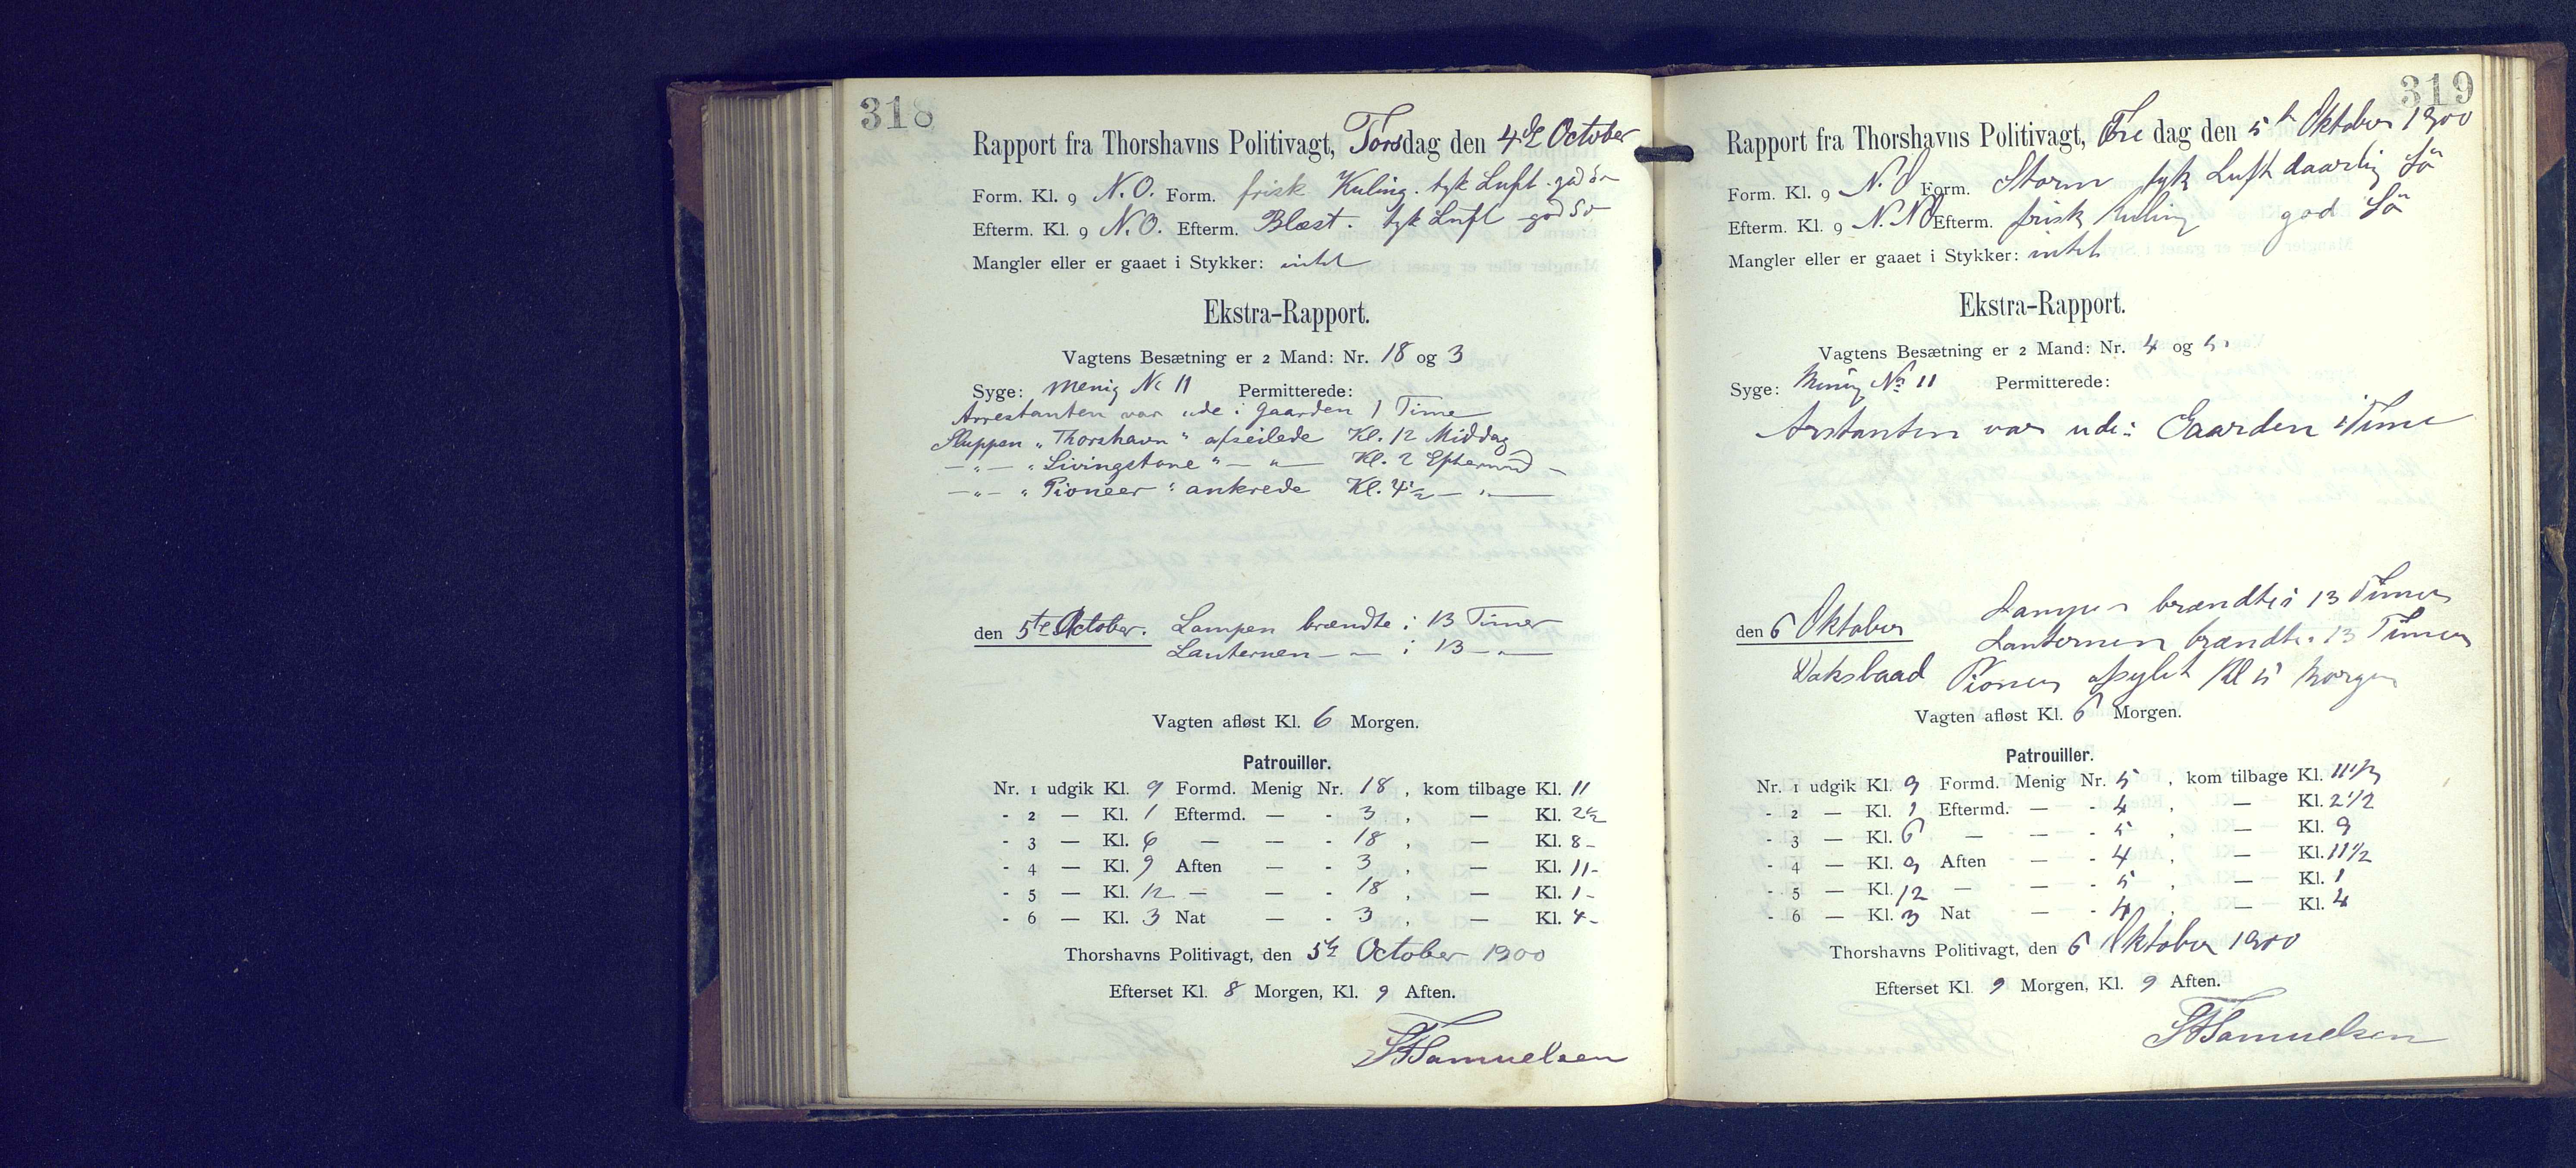 318
Rapport fra Thorshavns Politivagt, Torsdag den 4de October
Form. Kl. 9 N.O. Form. frisk Kuling. tyk Luft. god Sø
Efterm. Kl. 9 N.O. Efterm. Blæst. tyk Luft god Sø
Mangler eller er gaaet i Stykker: intet
Ekstra-Rapport.
Vagtens Besætning er 2 Mand: Nr. 18 og 3
Syge: Menig No 11 Permitterede:
Arrestanten var ude i Gaarden 1 Time
Sluppen "Thorshavn" afseilede Kl. 12 Middag
— " — "Livingstone" — " — Kl. 2 Eftermd —
— " — "Pioneer" ankrede Kl. 4½ — " —
den 5te October. Lampen brændte i 13 Timer
Lanternen — " — i 13 — " —
Vagten afløst Kl. 6 Morgen.
Patrouiller.
Nr. 1 udgik Kl. 9 Formd. Menig Nr. 18, kom tilbage Kl. 11
- 2 — Kl. 1 Eftermd. — - 3, — Kl. 2½
- 3 — Kl. 6 — — - 18, — Kl. 8 -
- 4 — Kl. 9 Aften — - 3, — Kl. 11 -
- 5 — Kl. 12 — — - 18, — Kl. 1 -
- 6 — Kl. 3 Nat — - 3, — Kl. 4 -
Thorshavns Politivagt, den 5te October 1900
Efterset Kl. 8 Morgen, Kl. 9 Aften.
Samuelsen
319
Rapport fra Thorshavns Politivagt, Fredag den 5te Oktober 1900
Form. Kl. 9 N.O Form. Storm tyk Luft daarlig Sø
Efterm. Kl. 9 N.NO Efterm. frisk Kuling god Sø
Mangler eller er gaaet i Stykker: intet
Ekstra-Rapport.
Vagtens Besætning er 2 Mand: Nr. 4 og 5.
Syge: Menig No 11 Permitterede:
Arstanten var ude i Gaarden 1 Time
den 6 Oktober Lampen brændte i 13 Timer
Lanternen brændte i 13 Timer
Pioner afsylet Kl 5 Morgen
Vagten afløst Kl. 6 Morgen.
Patrouiller.
Nr. 1 udgik Kl. 9 Formd. Menig Nr. 5, kom tilbage Kl. 11½
- 2 — Kl. 1 Eftermd. — - 4, — Kl. 2½
- 3 — Kl. 6 — — - 5, — Kl. 9
- 4 — Kl. 9 Aften — - 4, — Kl. 11½
- 5 — Kl. 12 — — - 5, — Kl. 1
- 6 — Kl. 3 Nat — - 4, — Kl. 4
Thorshavns Politivagt, den 6 Oktober 1900
Efterset Kl. 9 Morgen, Kl. 9 Aften.
Samuelsen